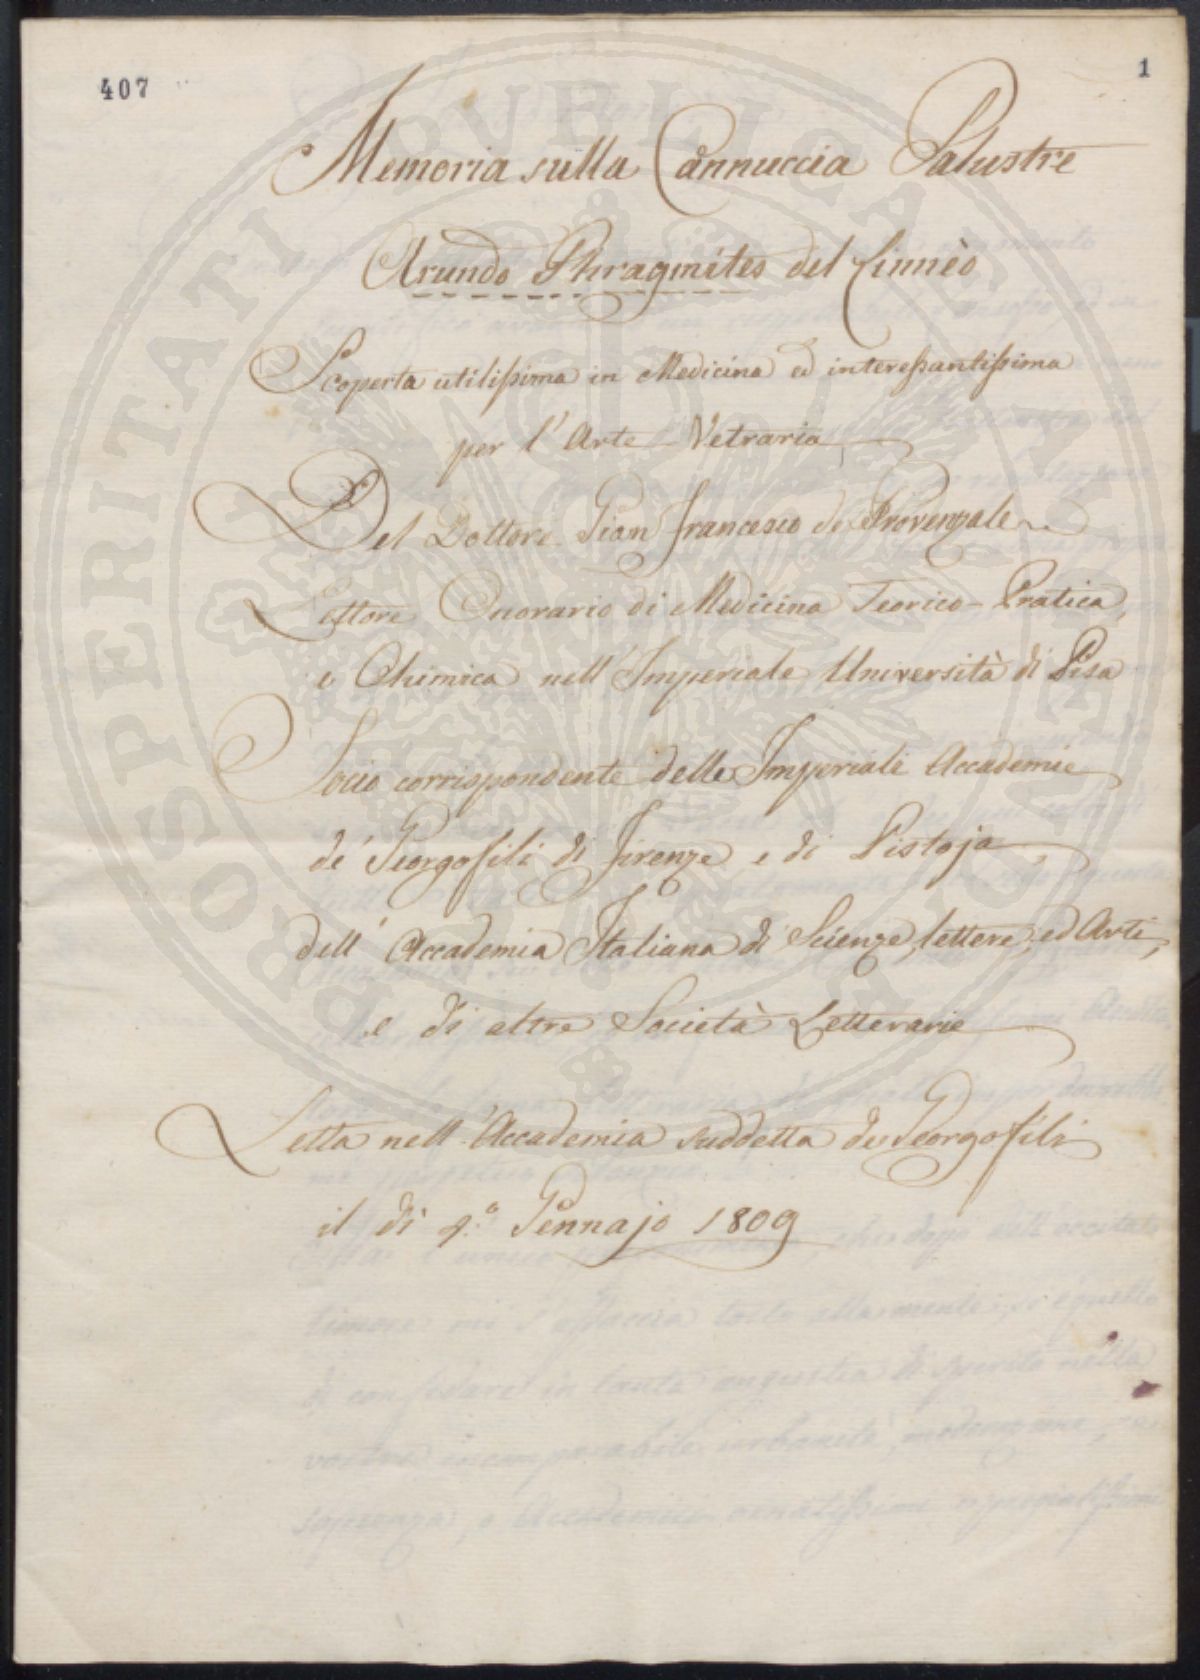 407
1
Memoria sulla Cannuccia Palustre
Arundo Phragmites del Linnèo
Scoperta utilissima in Medicina ed interessantissima
per l'Arte Vetraria
Del Dottore Gian Francesco de Provenzale
Lettore Onorario di Medicina Teorico-Pratica,
e Chimica nell'Imperiale Università di Pisa
Socio corrispondente delle Imperiali Accademie
de' Georgofili di Firenze, e di Pistoja,
dell'Accademia Italiana di Scienze, lettere, ed Arti,
e di altre Società Letterarie
Letta nell'Accademia suddetta de Georgofili
il dì Gennajo 1809
PROSPERITATI PUBLICAE AUGENDAE